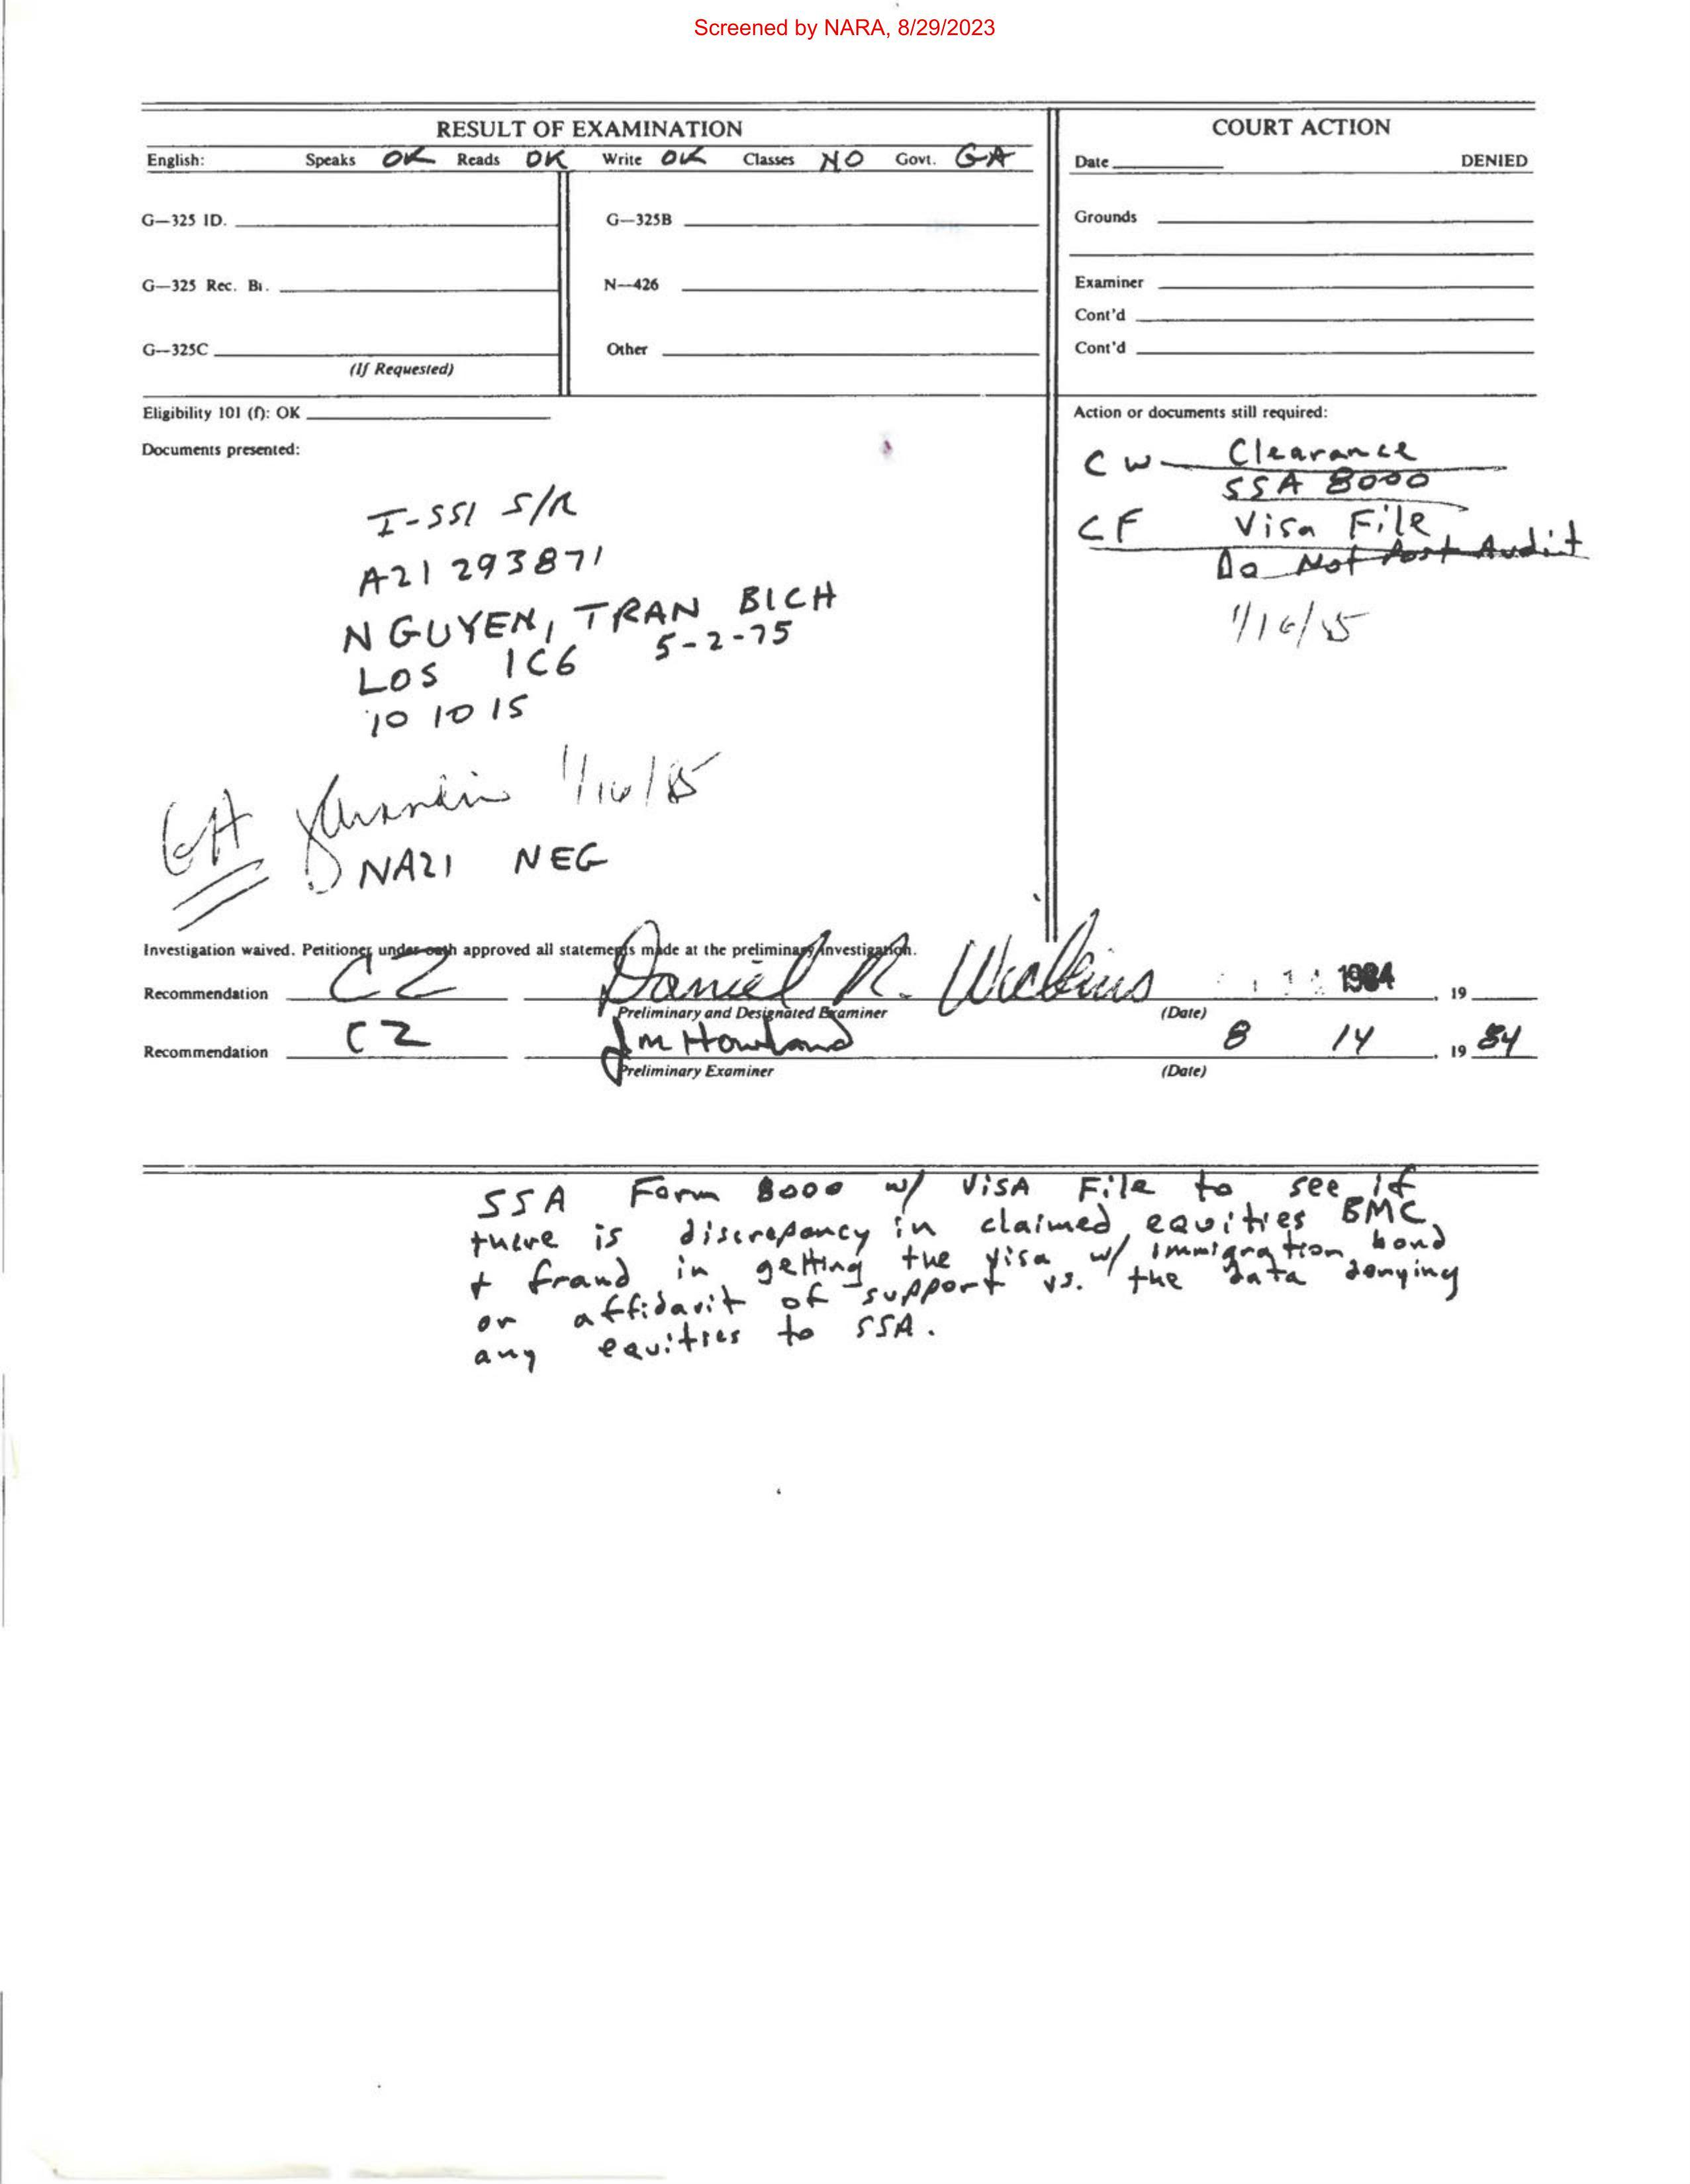 Screened by NARA, 8/29/2023
RESULT OF EXAMINATION
English: Speaks OK Reads OK Write OK Classes NO Govt. GA
G—325 ID.
G—325B
G—325 Rec. Br.
N—426
G—325C
Other
(If Requested)
Eligibility 101 (f): OK
Documents presented:
I-551 S/R
A21 293871
NGUYEN, TRAN BICH
LOS 1C6 5-2-75
10 10 15
GA 1/16/85
NAZI NEG
COURT ACTION
Date DENIED
Grounds
Examiner
Cont'd
Cont'd
Action or documents still required:
CW Clearance
SSA 8000
CF Visa File
Do Not Post Audit
1/16/85
Investigation waived. Petitioner under oath approved all statements made at the preliminary investigation.
Recommendation CZ Daniel R. 1984 , 19
Preliminary and Designated Examiner (Date)
Recommendation CZ JM Howland 8 14 , 19 84
Preliminary Examiner (Date)
SSA Form 8000 w/ VISA File to see if
there is discrepancy in claimed equities BMC,
+ fraud in getting the visa w/ immigration bond
or affidavit of support vs. the data denying
any equities to SSA.